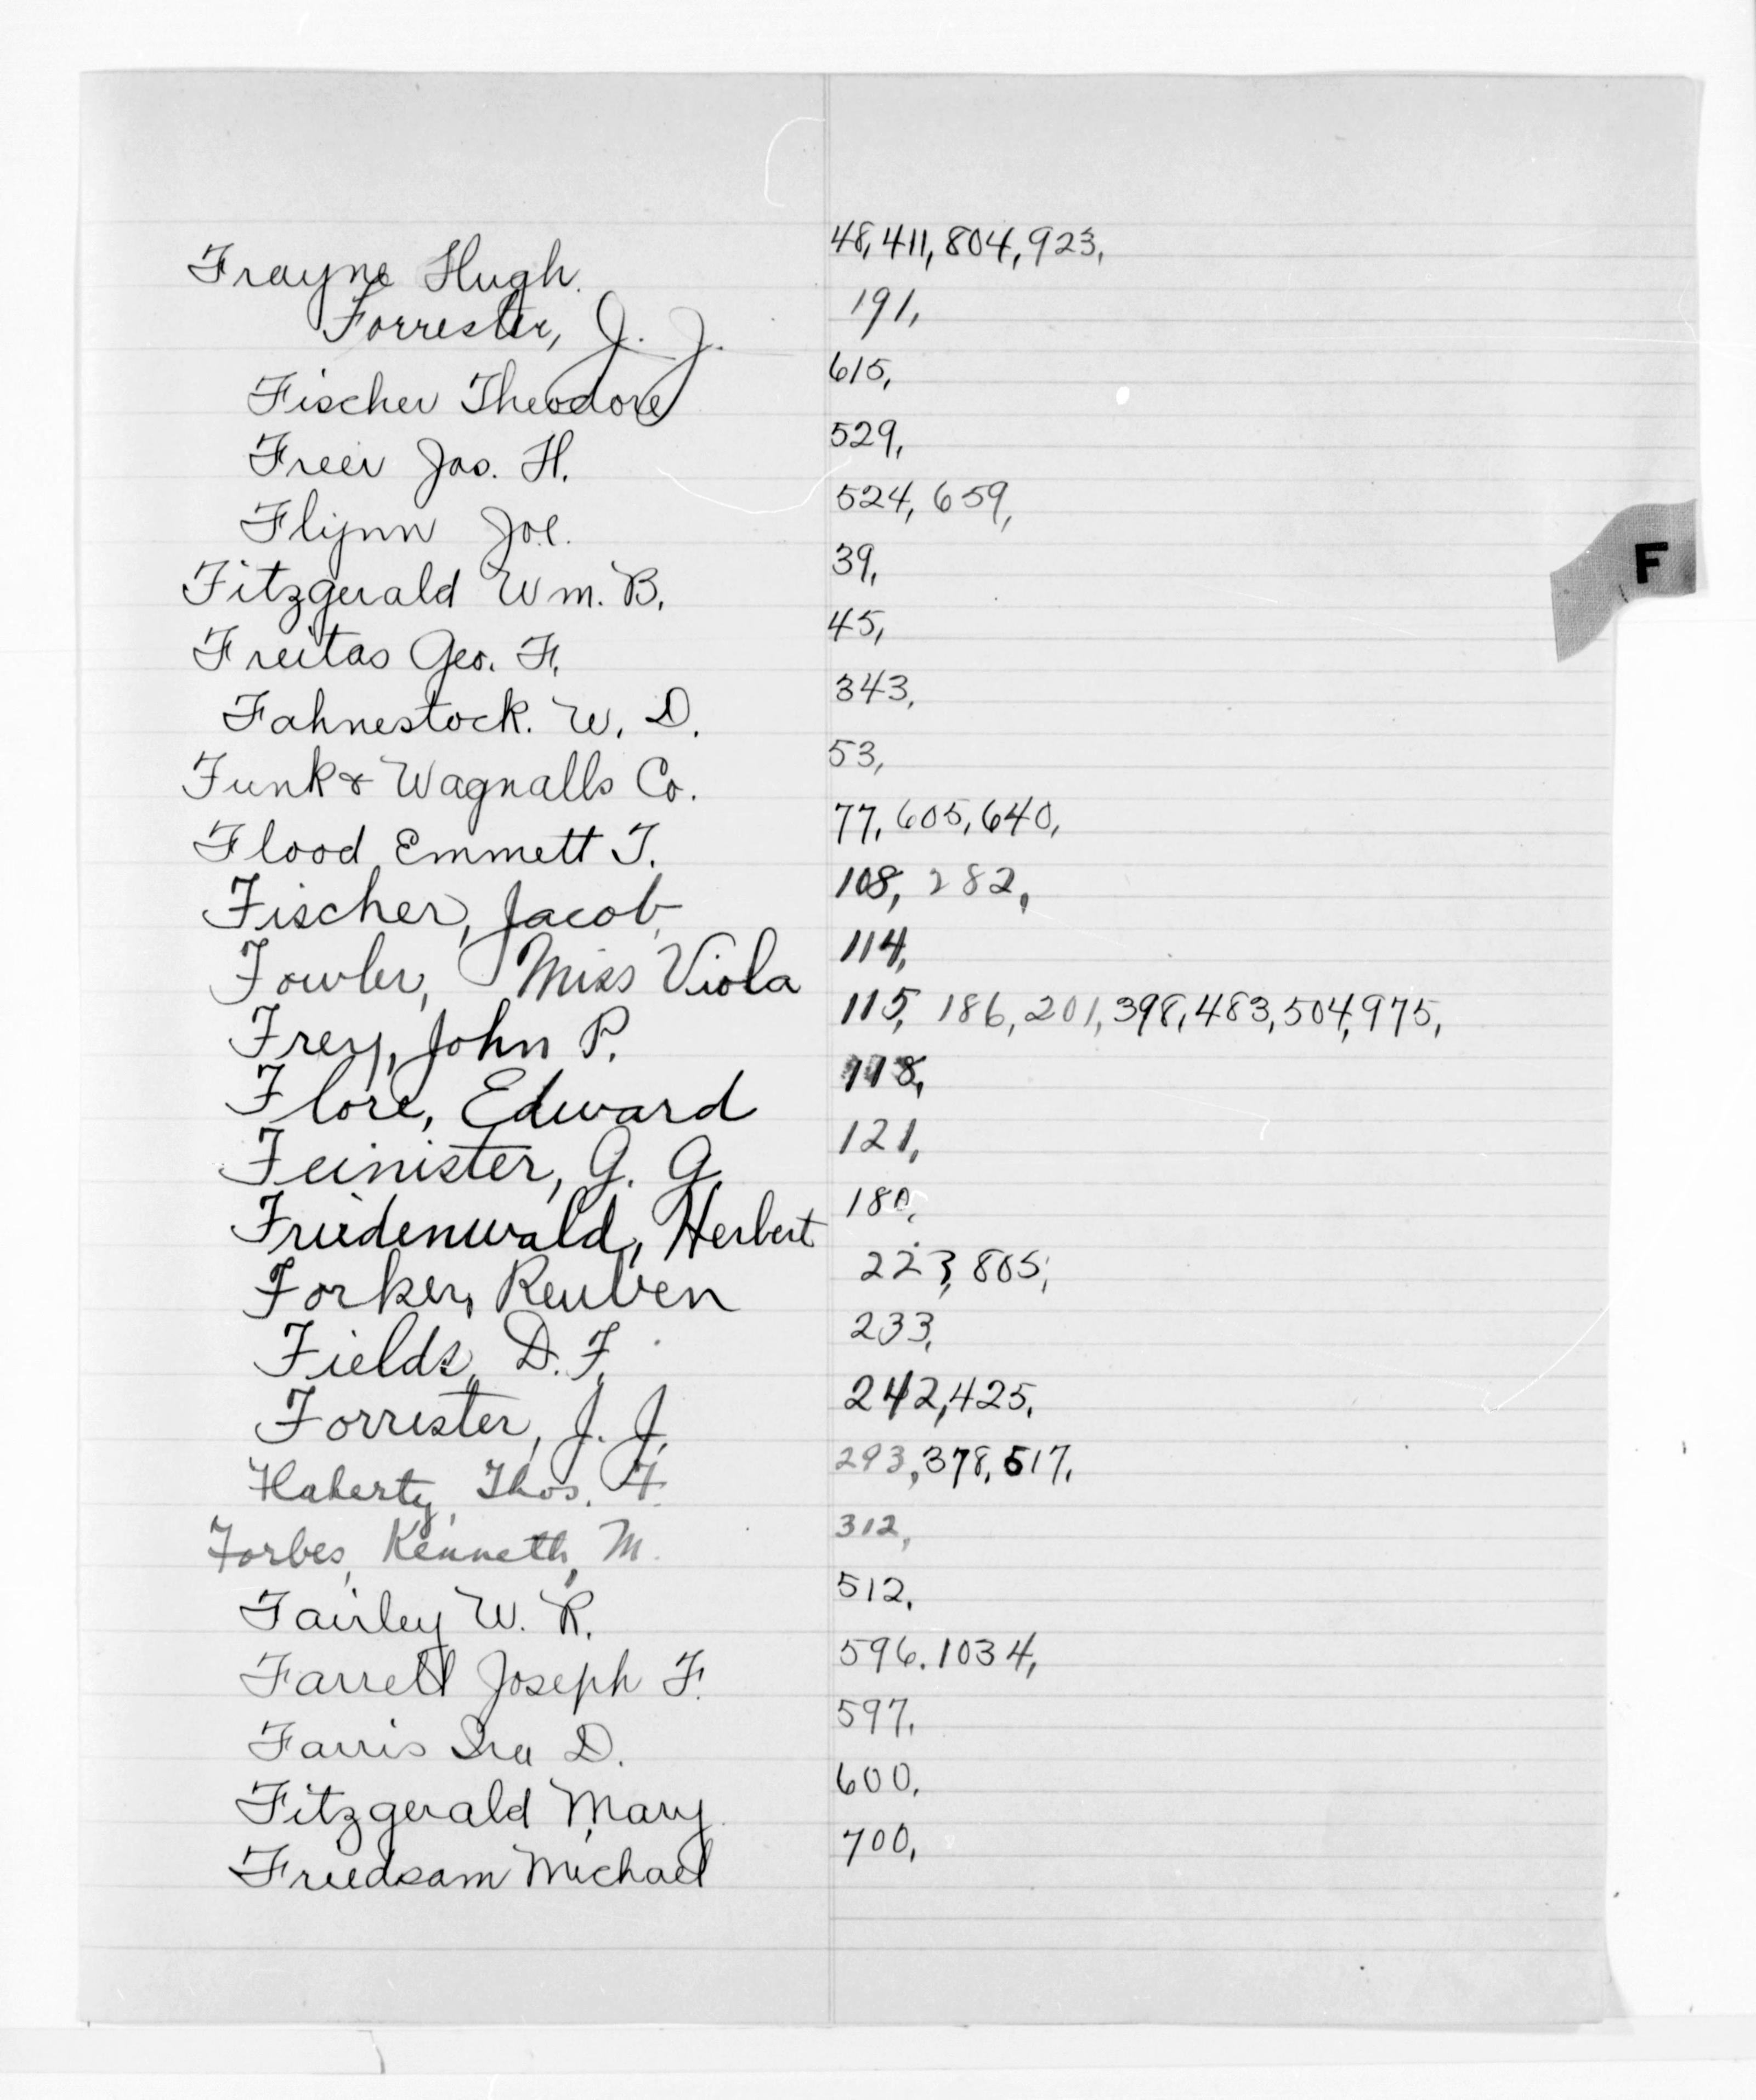 Frayne Hugh. 48, 411, 804, 923,
Forrester, J. J. 191,
Fischer Theodore 615,
Freer Jas. H. 529,
Flynn Joe. 524, 659,
Fitzgerald Wm. B. 39,
Freitas Geo. F. 45,
Fahnestock. W. D. 343,
Funk & Wagnalls Co. 53,
F
Flood Emmett T. 77, 605, 640,
Fischer, Jacob, 108, 282,
Fowler, Miss Viola 114,
Frey, John P. 115, 186, 201, 398, 483, 504, 975,
Flore, Edward 118,
Feinister, G. G. 121,
Friedenwald, Herbert 180,
Forker, Reuben 223, 805,
Fields, D. F. 233,
Forrester, J. J. 242, 425,
Flaherty, Thos. F. 293, 378, 517,
Forbes, Kenneth, M. 312,
Fairley W. R. 512,
Farrell Joseph F. 596. 1034,
Farris Ira D. 597,
Fitzgerald Mary 600,
Friedsam Michael 700,